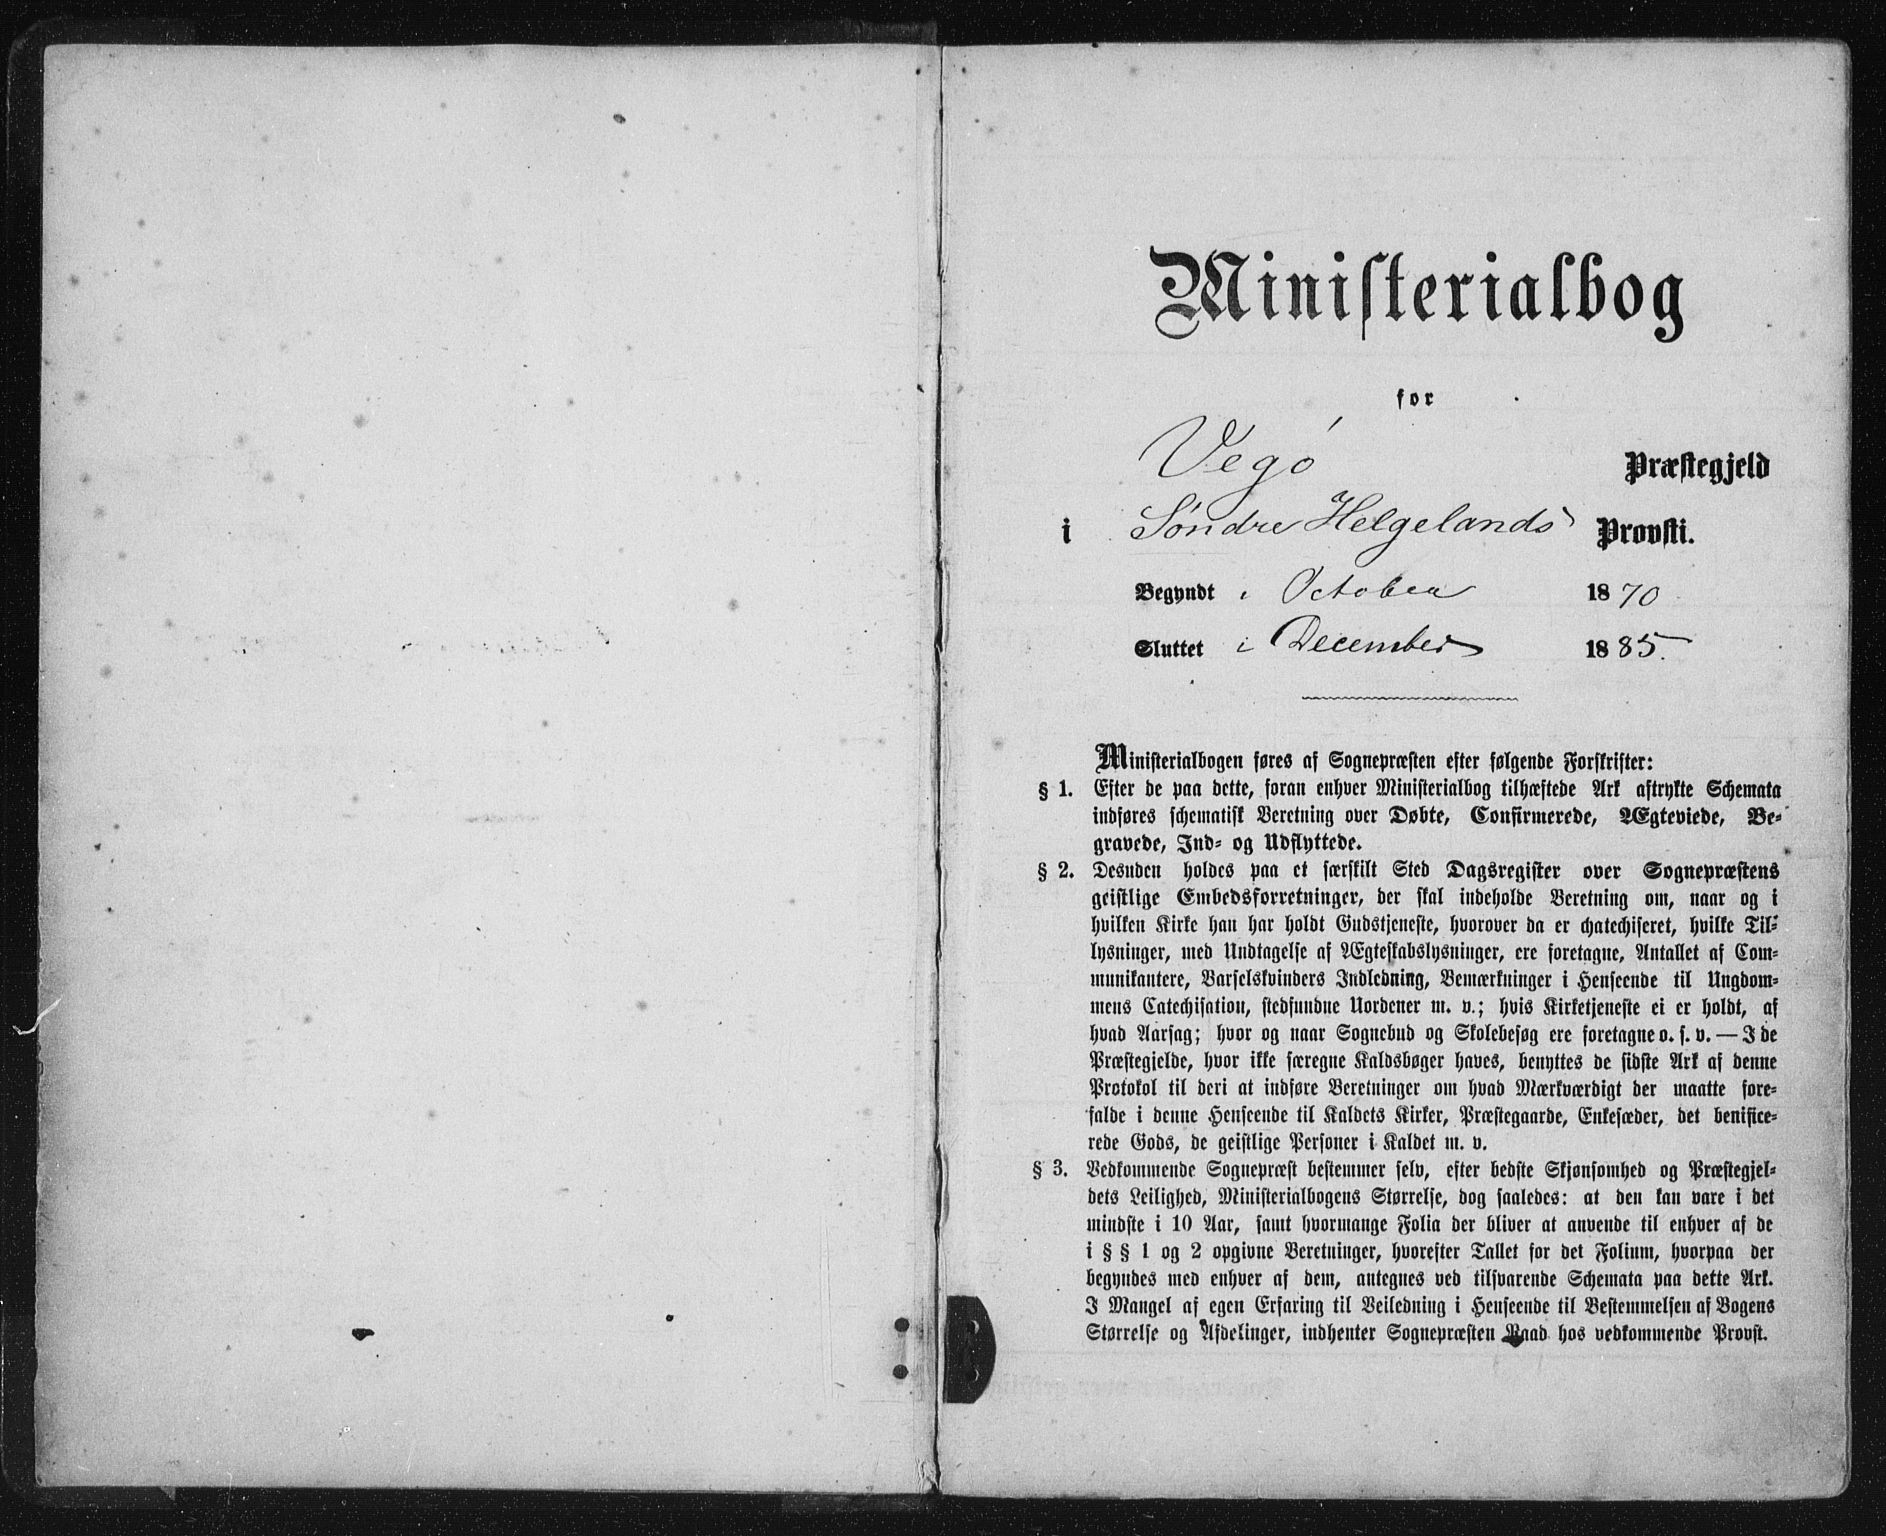 Ministerialbog
for
Vegø Præstegjeld
i Søndre Helgelands Provsti.
Begyndt i October 1870
Sluttet i December 1885.
Ministerialbogen føres af Sognepræsten efter følgende Forskrifter:
§ 1. Efter de paa dette, foran enhver Ministerialbog tilhæftede Ark aftrykte Schemata
indføres schematisk Beretning over Døbte, Confirmerede, Ægteviede, Be-
gravede, Ind- og Udflyttede.
§ 2. Desuden holdes paa et særskilt Sted Dagsregister over Sognepræstens
geistlige Embedsforretninger, der skal indeholde Beretning om, naar og i
hvilken Kirke han har holdt Gudstjeneste, hvorover da er chatechiseret, hvilke Til-
lysninger, med Undtagelse af Ægteskabslysninger, ere foretagne, Antallet af Com-
munikantere, Barselskvinders Indledning, Bemærkninger i Henseende til Ungdom-
mens Catechisation, stedfundne Uordener m. v.; hvis Kirketjeneste ei er holdt, af
hvad Aarsag; hvor og naar Sognebud og Skolebesøg ere foretagne o. s. v. — I de
Præstegjelde, hvor ikke særegne Kaldsbøger haves, benyttes de sidste Ark af denne
Protokol til deri at indføre Beretninger om hvad Mærkværdigt der maatte fore-
falde i denne Henseende til Kaldets Kirker, Præstegaarde, Enkesæder, det benifice-
rede Gods, de geistlige Personer i Kaldet m. v.
§ 3. Vedkommende Sognepræst bestemmer selv, efter bedste Skjønsomhed og Præstegjel-
dets Leilighed, Ministerialbogens Størrelse, dog saaledes: at den kan vare i det
mindste i 10 Aar, samt hvormange Folia der bliver at anvende til enhver af de
i § § 1 og 2 opgivne Beretninger, hvorefter Tallet for det Folium, hvorpaa der
begyndes med enhver af dem, antegnes ved tilsvarende Schemata paa dette Ark.
I Mangel af egen Erfaring til Veiledning i Henseende til Bestemmelsen af Bogens
Størrelse og Afdelinger, indhenter Sognepræsten Raad hos vedkommende Provst.